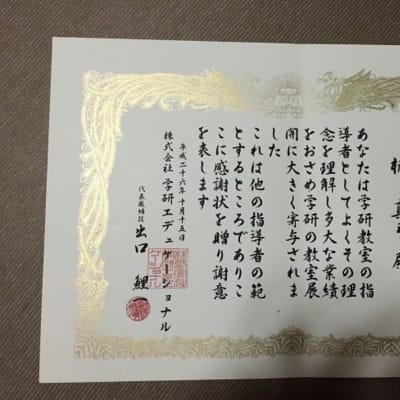 あなたは学研教室の指
導者としてよくその理
念を理解し多大な業績
をおさめ学研の教室展
開に大きく寄与されま
した
これは他の指導者の範
とするところでありこ
こに感謝状を贈り謝意
を表します
平成二十六年十月十五日
株式会社 学研エデュケーショナル
代表取締役 出口 鯉一